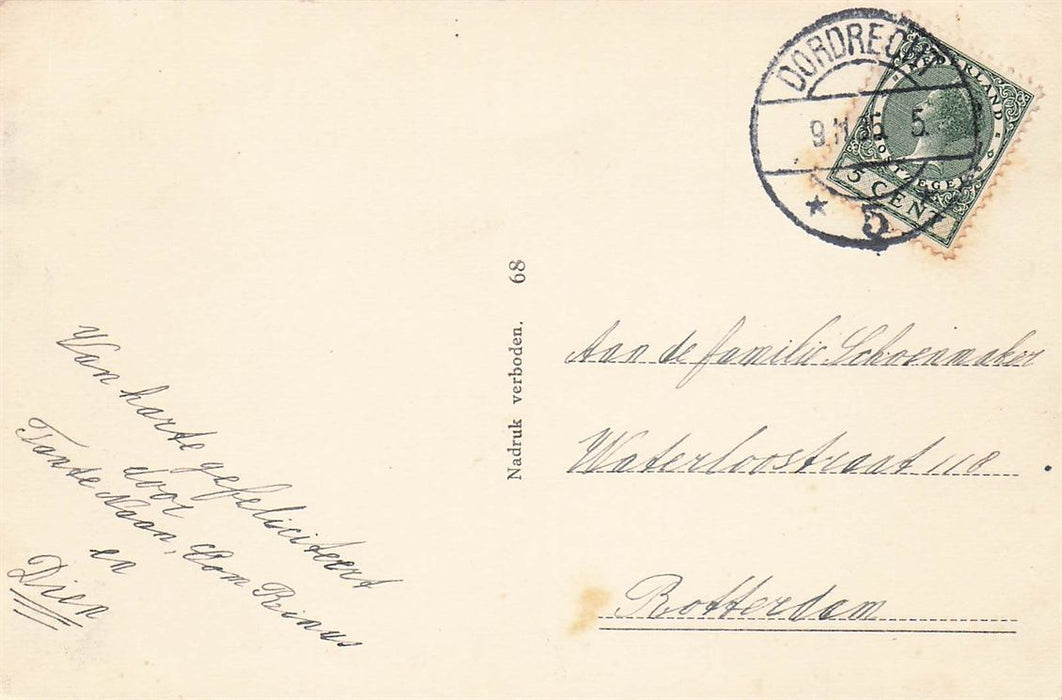 DORDRECHT
5
NEDERLAND
POSTZEGEL
5 CENT
Van harte gefeliciteert
door
Tante Naan, Oom Rinus
en
Dien
Nadruk verboden. 68
Aan de familie Schoenmaker
Waterloostraat 118
Rotterdam